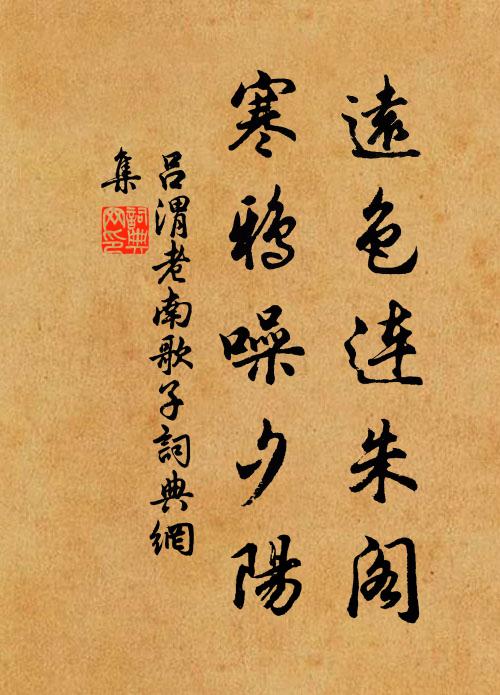 遠色連朱阁
寒鴉噪夕陽
吕渭老南歌子詞典網
集
詞典网印